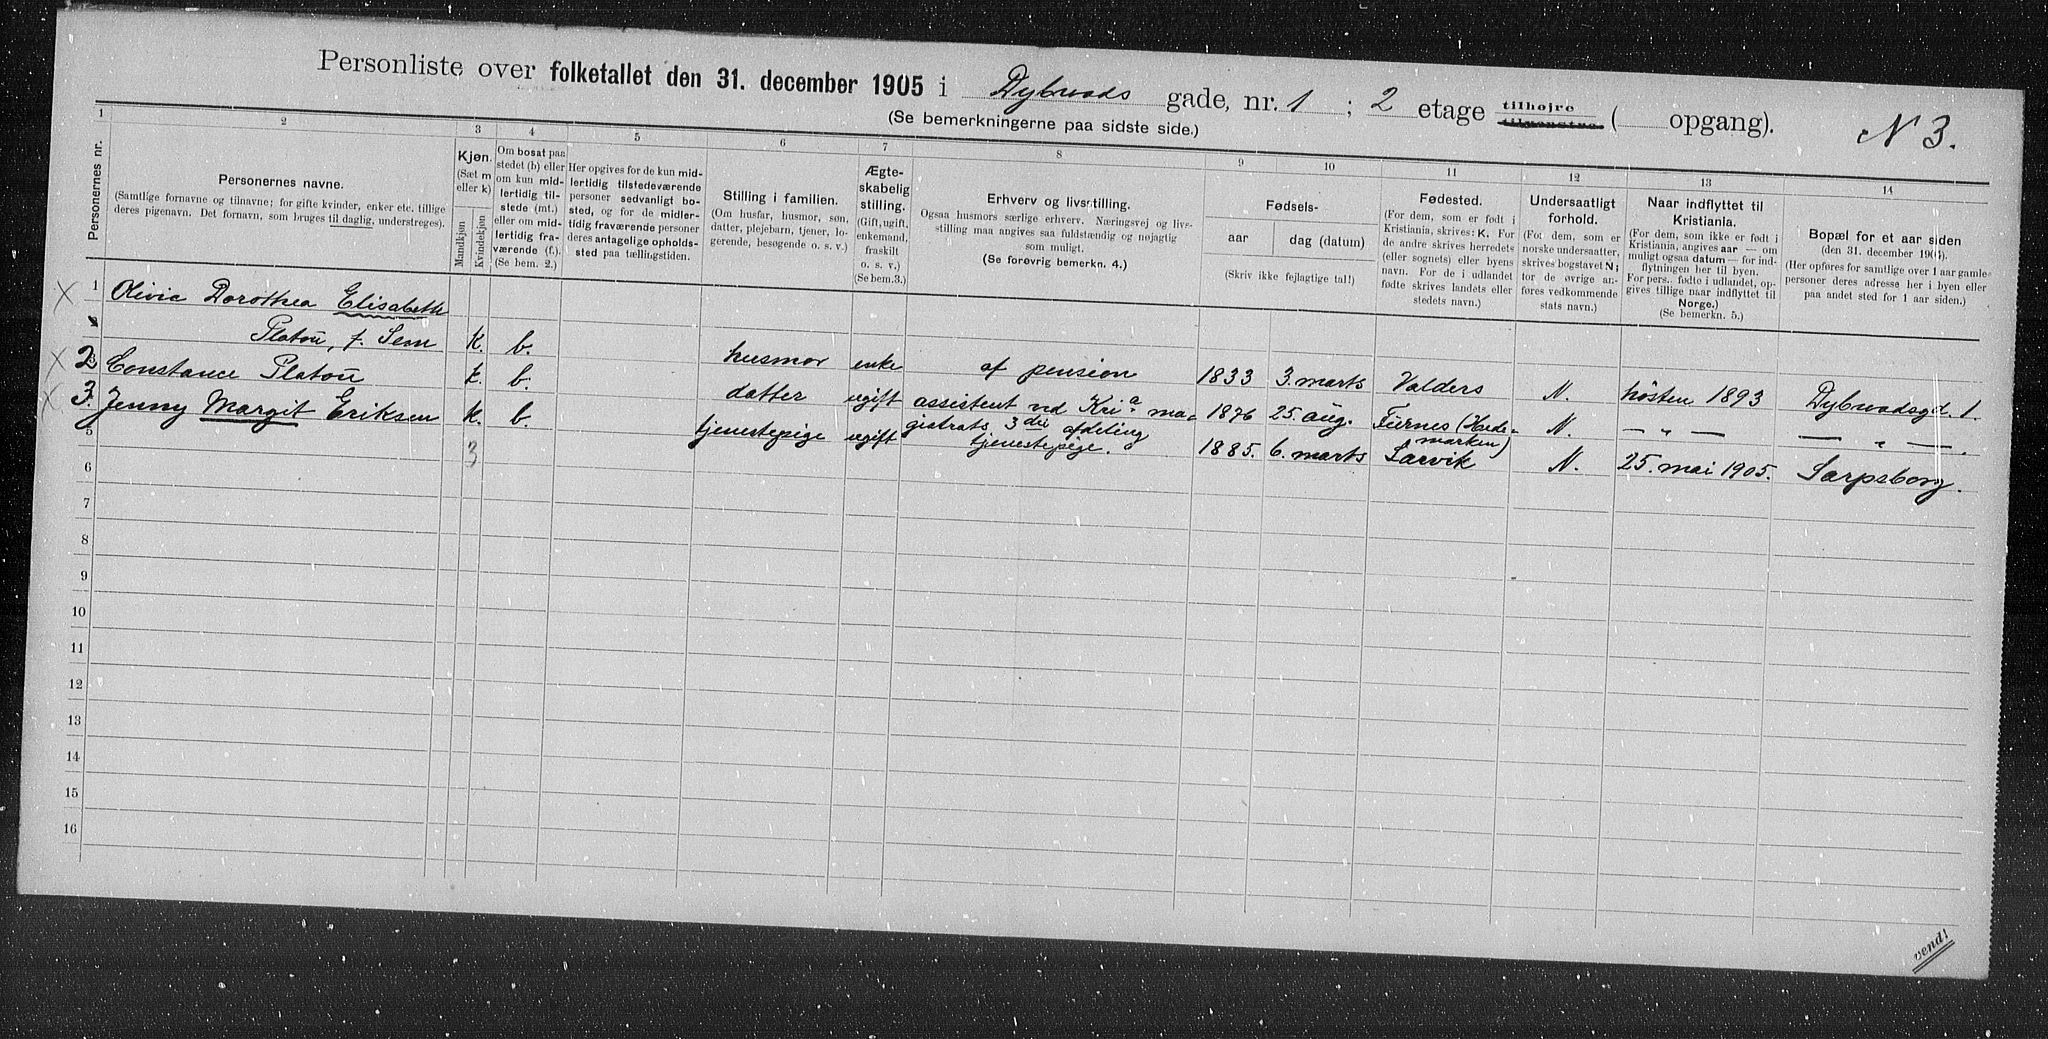 Personliste over folketallet den 31. december 1905 i Dybwads gade, nr. 1 ; 2 etage tilhøjre tilvenstre ( opgang). N 3.
(Se bemerkningerne paa sidste side.)
1 2 3 4 5 6 7 8 9 10 11 12 13 14
Personernes nr.
Personernes navne.
(Samtlige fornavne og tilnavne; for gifte kvinder, enker etc. tillige
deres pigenavn. Det fornavn, som bruges til daglig, understreges).
Kjøn.
(Sæt m
eller k)
Mandkjøn
Kvindekjøn
Om bosat paa
stedet (b) eller
om kun mid-
lertidig til-
stede (mt.)
eller om mid-
lertidig fra-
værende (f.).
(Se bem. 2.)
Her opgives for de kun mid-
lertidig tilstedeværende
personer sedvanligt bo-
sted, og for de midler-
tidig fraværende personer
deres antagelige opholds-
sted paa tællingstiden.
Stilling i familien.
(Om husfar, husmor, søn,
datter, plejebarn, tjener, lo-
gerende, besøgende o. s. v.)
Ægte-
skabelig
stilling.
(Gift, ugift,
enkemand,
fraskilt
o. s. v.)
(Se bem. 3.)
Erhverv og livsstilling.
Ogsaa husmors særlige erhverv. Næringsvej og live-
stilling maa angives saa fuldstændig og nøjagtig
som muligt.
(Se forøvrig bemerkn. 4.)
Fødsels-
aar
dag (datum)
(Skriv ikke fejlagtige tal!)
Fødested.
(For dem, som er født i
Kristiania, skrives: K. For
de andre skrives herredets
(eller sognets) eller byens
navn. For de i udlandet
fødte skrives landets eller
stedets navn.)
Undersaatligt
forhold.
(For dem, som er
norske undersaatter,
skrives bogstavet N;
for de øvrige an-
føres vedkommende
stats navn.)
Naar indflyttet til
Kristiania.
(For dem, som ikke er født i
Kristiania, angives aar — om
muligt ogsaa datum — for ind-
flytningen her til byen.
For pers. født i udlandet, op-
gives tillige naar indflyttet til
Norge.)
(Se bemerkn. 5.)
Bopæl for et aar siden
(den 31. december 1904)
(Her opføres for samtlige over 1 aar gamle
personer deres adresse her i byen eller
paa andet sted for 1 aar siden.)
X 1 Olivia Dorothea Elisabeth
Platou, f. Sem k. b. husmor enke af pension 1833 3. marts Valders N. høsten 1893 Dybwadsgd. 1.
X 2 Constance Platou k. b. datter ugift assistent ved Kria ma- 1876 25. aug. Furnes (Hede- N. — „ — — „ — .
gistrats 3die afdeling marken)
X 3. Jenny Margit Eriksen k. b. tjenestepige ugift tjenestepige. 1885. 6. marts Larvik N. 25. mai 1905. Sarpsborg.
5
3
6
7
8
9
10
11
12
13
14
15
16
vend!